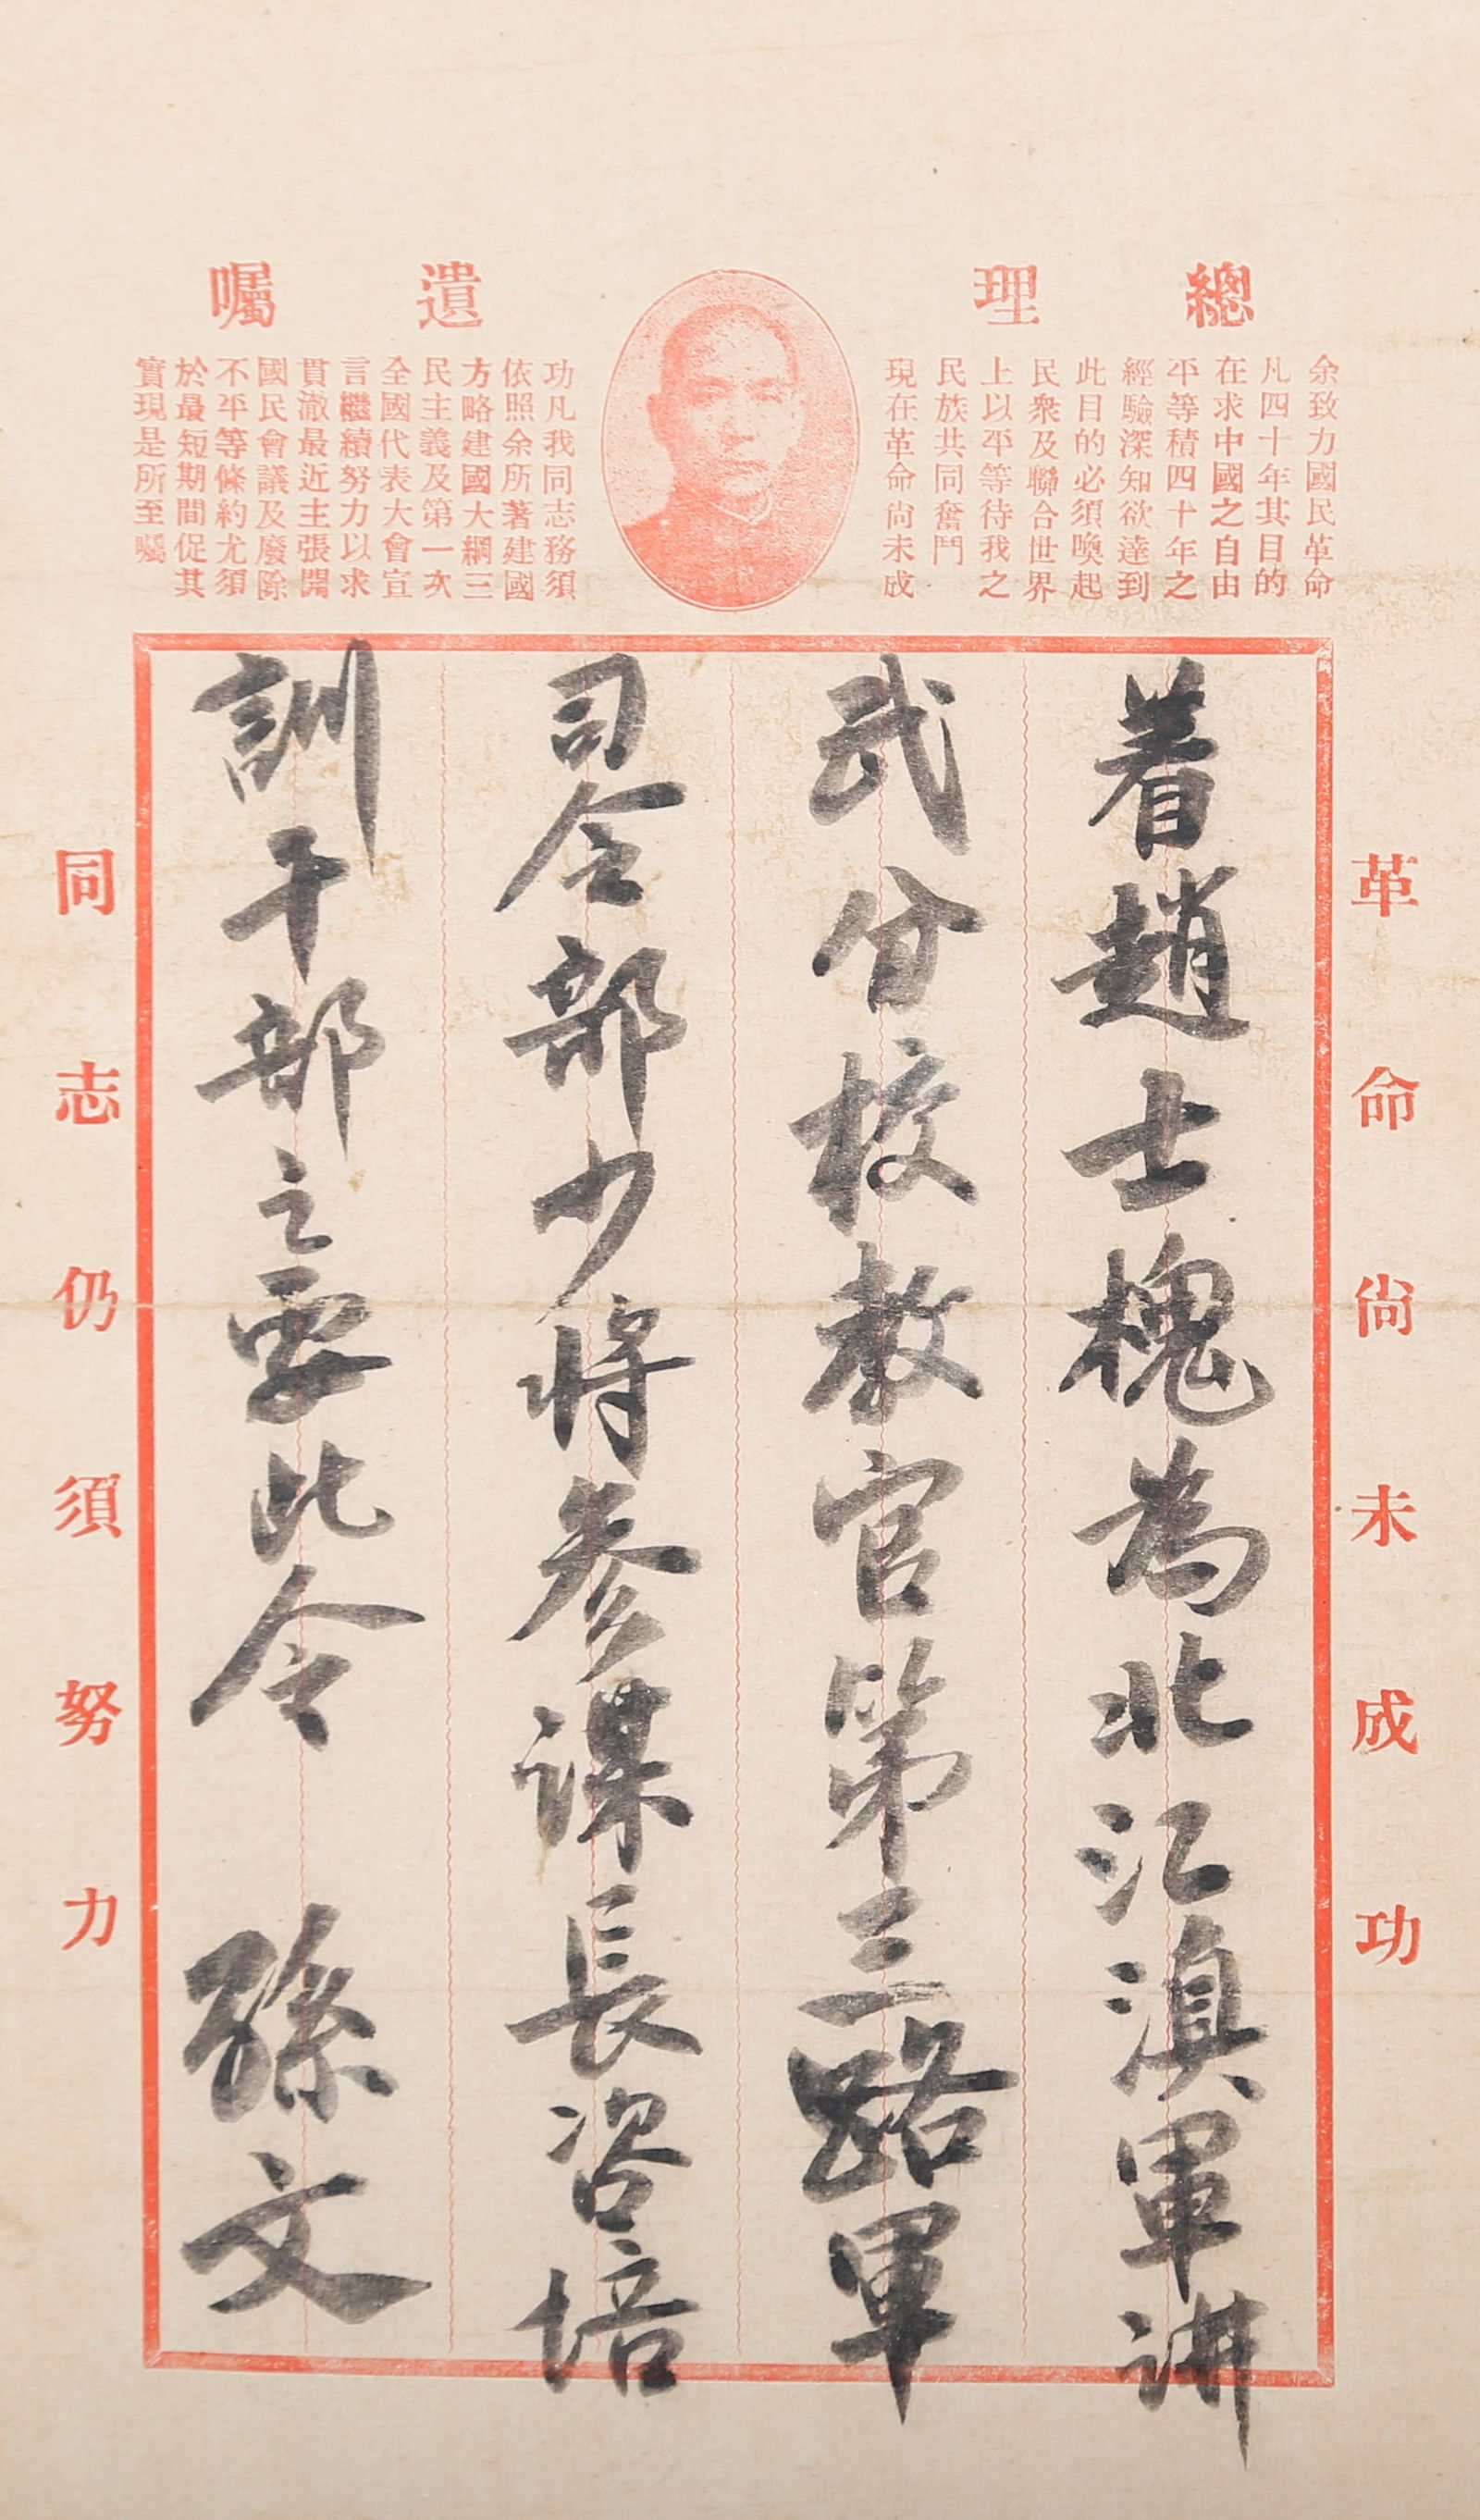 總理遺囑
余致力國民革命
凡四十年其目的
在求中國之自由
平等積四十年之
經驗深知欲達到
此目的必須喚起
民衆及聯合世界
上以平等待我之
民族共同奮鬥
現在革命尚未成
功凡我同志務須
依照余所著建國
方略建國大綱三
民主義及第一次
全國代表大會宣
言繼續努力以求
貫澈最近主張開
國民會議及廢除
不平等條約尤須
於最短期間促其
實現是所至囑
革命尚未成功
着趙士槐為北江滇軍講
武分校教官第三路軍
司令部少將參謀長咨培
訓干部之要此令 孫文
同志仍須努力